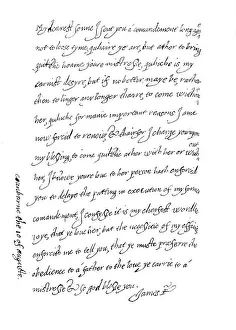 My dearest sonne I sent you a comandement long ago
not to loose tyme, quhaire ye are, but ather to bring
quikkelie hoame youre mistresse, quhiche is my
earnist desyre, but if no better maye be, rather
then to linger any longer thaire, to come without
her, quhiche for manie important reasons I ame
now forced to renew & thairfor I charge you on
my blessing to come quikklie ather with her or without
her, I knowe youre love to her person hath enforced
you to delaye the putting in execution of my former
comandement, I confesse it is my cheifest worldlie
joye, that ye love her, but the necessitie of my effaires
enforcith me to tell you, that ye muste præferre the
obedience to a father to the love ye carrie to a
mistresse & so god blesse you.
James R
the 10 of auguste.